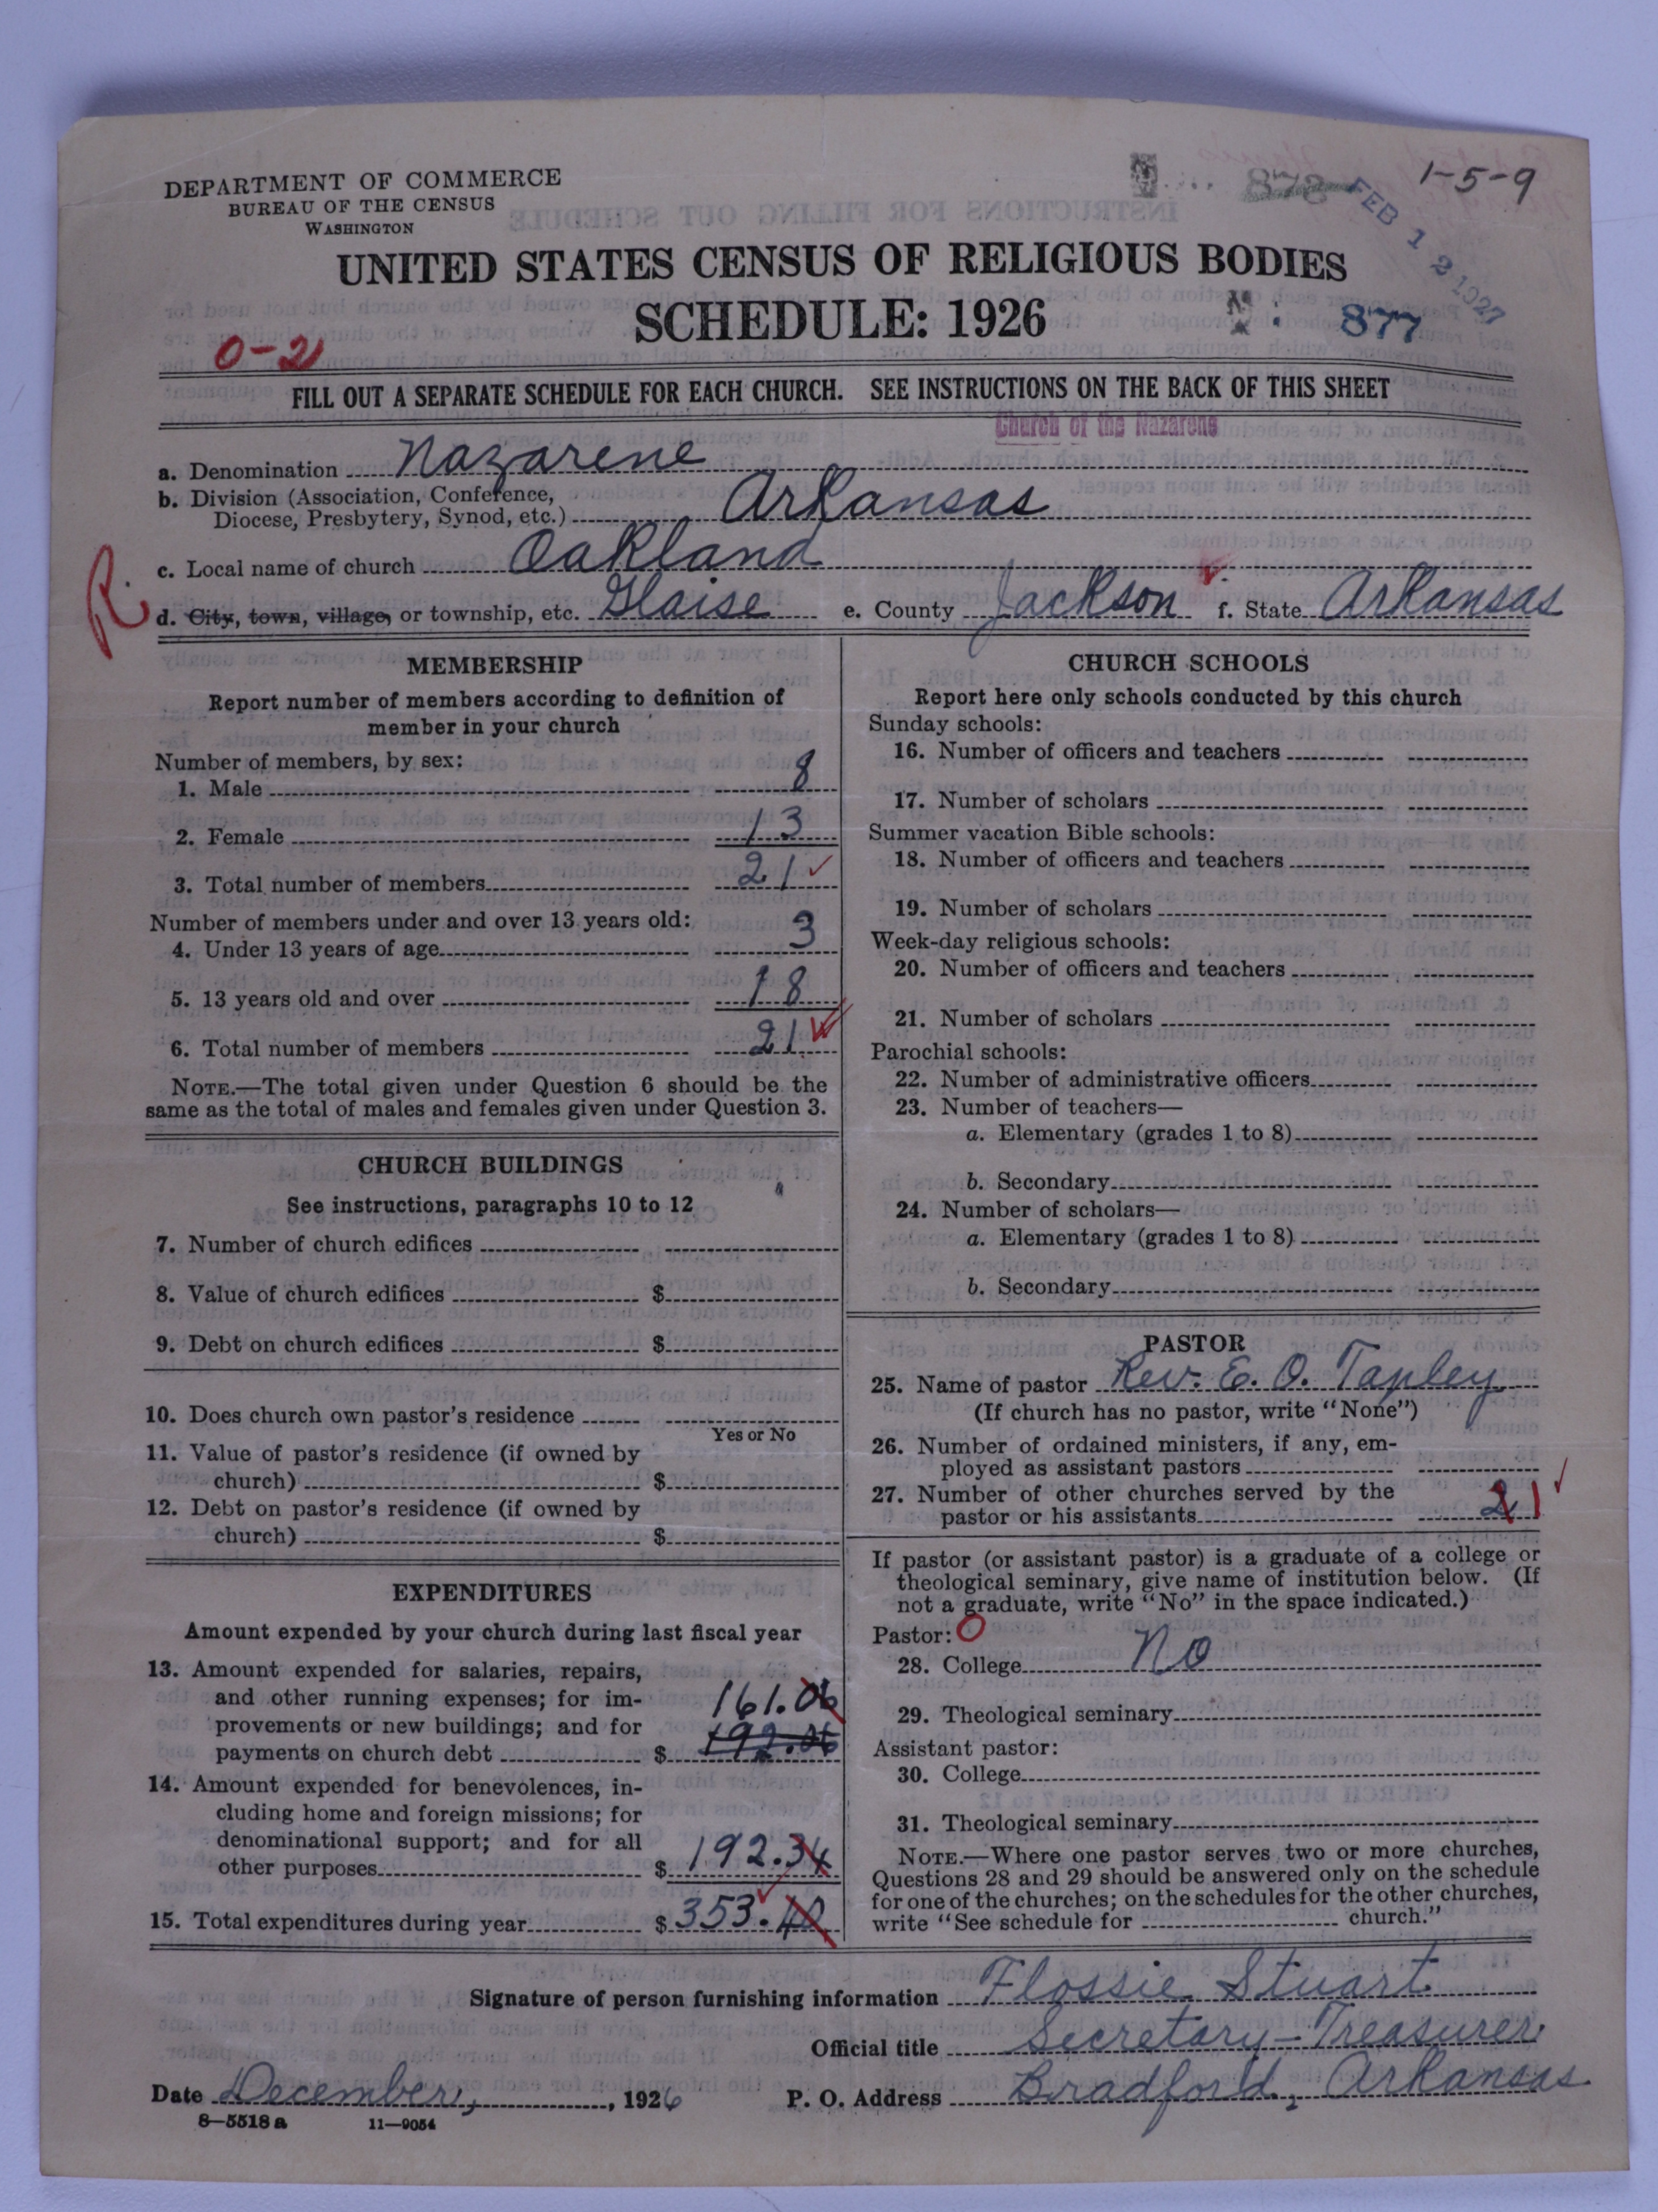 DEPARTMENT OF COMMERCE
BUREAU OF THE CENSUS
WASHINGTON
1-5-9
FEB 12 1927
UNITED STATES CENSUS OF RELIGIOUS BODIES
SCHEDULE: 1926
877
0-2
FILL OUT A SEPARATE SCHEDULE FOR EACH CHURCH. SEE INSTRUCTIONS ON THE BACK OF THIS SHEET
Church of the Nazarene
a. Denomination Nazarene
b. Division (Association, Conference,
Diocese, Presbytery, Synod, etc.) Arkansas
c. Local name of church Oakland
R.
d. City, town, village, or township, etc. Glaise e. County Jackson f. State Arkansas
MEMBERSHIP
Report number of members according to definition of
member in your church
Number of members, by sex:
1. Male 8
2. Female 13
3. Total number of members 21
Number of members under and over 13 years old:
4. Under 13 years of age 3
5. 13 years old and over 18
6. Total number of members 21
NOTE.—The total given under Question 6 should be the
same as the total of males and females given under Question 3.
CHURCH BUILDINGS
See instructions, paragraphs 10 to 12
7. Number of church edifices
8. Value of church edifices $
9. Debt on church edifices $
10. Does church own pastor's residence
Yes or No
11. Value of pastor's residence (if owned by
church) $
12. Debt on pastor's residence (if owned by
church) $
EXPENDITURES
Amount expended by your church during last fiscal year
13. Amount expended for salaries, repairs,
and other running expenses; for im-
161.06
provements or new buildings; and for
payments on church debt $ 192.06
14. Amount expended for benevolences, in-
cluding home and foreign missions; for
denominational support; and for all
other purposes $ 192.34
15. Total expenditures during year $ 353.40
CHURCH SCHOOLS
Report here only schools conducted by this church
Sunday schools:
16. Number of officers and teachers
17. Number of scholars
Summer vacation Bible schools:
18. Number of officers and teachers
19. Number of scholars
Week-day religious schools:
20. Number of officers and teachers
21. Number of scholars
Parochial schools:
22. Number of administrative officers
23. Number of teachers—
a. Elementary (grades 1 to 8)
b. Secondary
24. Number of scholars—
a. Elementary (grades 1 to 8)
b. Secondary
PASTOR
25. Name of pastor Rev. E. O. Tapley
(If church has no pastor, write "None")
26. Number of ordained ministers, if any, em-
ployed as assistant pastors
27. Number of other churches served by the
pastor or his assistants 2 1
If pastor (or assistant pastor) is a graduate of a college or
theological seminary, give name of institution below. (If
not a graduate, write "No" in the space indicated.)
Pastor: 0
28. College No
29. Theological seminary
Assistant pastor:
30. College
31. Theological seminary
NOTE.—Where one pastor serves two or more churches,
Questions 28 and 29 should be answered only on the schedule
for one of the churches; on the schedules for the other churches,
write "See schedule for church."
Signature of person furnishing information Flossie Stuart
Official title Secretary-Treasurer
Date December, 1926 P. O. Address Bradford, Arkansas
8-5518 a 11-9054